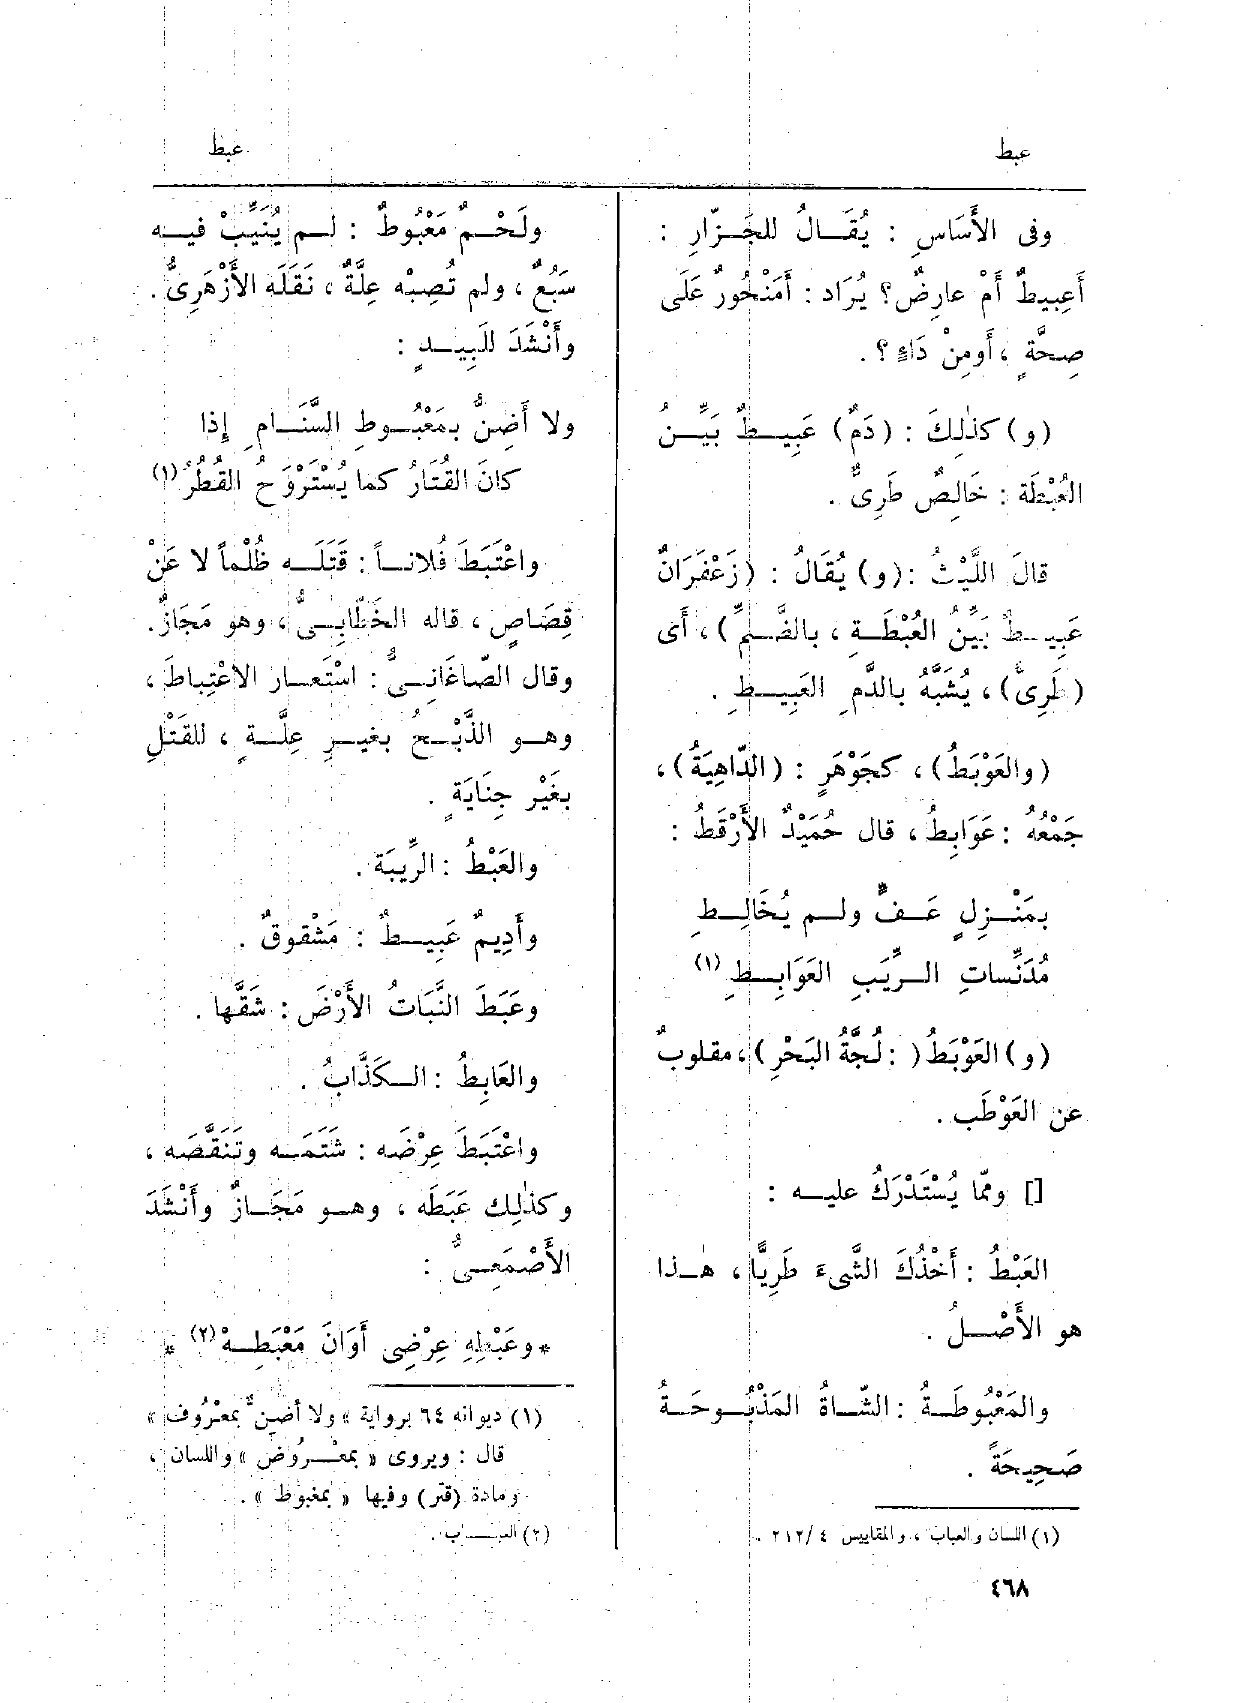 عبط
عبط
وفى الأَسَاسِ : يُقَـالُ للجَـزّارِ :
أَعبِيطٌ أَمْ عارِضٌ؟ يُرَاد : أَمَنْحُورٌ عَلَى
صِحَّةٍ ، أَومِنْ دَاءٍ ؟ .
(و) كذٰلِكَ : (دَمٌ) عَبِيـطٌ بَيِّـنُ
العُبْطَة : خَالِصٌ طَرِىٌّ .
قالَ اللَّيْثُ :(و) يُقَالُ : (زَعْفَرَانٌ
عَبِيـطٌ بَيِّنُ العُبْطَـةِ ، بالضَّـمِّ) ، أَى
(طَرِىٌّ) ، يُشَبَّهُ بالدَّمِ العَبِيـطِ .
(والعَوْبَطُ) ، كجَوْهَرٍ : (الدّاهِيَةُ) ،
جَمْعُهُ : عَوَابِطُ ، قال حُمَيْدٌ الأَرْقَطُ :
بمَنْـزِلٍ عَـفٌّ ولـم يُخَالِـطِ
مُدَنِّساتِ الـرِّيَبِ العَوَابِـطِ (١)
(و) العَوْبَطُ ( : لُجَّةُ البَحْرِ) ، مقلوبٌ
عن العَوْطَب .
[] وممّا يُسْتَدْرَكُ عليـه :
العَبْطُ : أَخْذُكَ الشَّىءَ طَرِيًّا ، هٰـذا
هو الأَصْـلُ .
والمَعْبُوطَـةُ : الشَّـاةُ المَذْبُـوحَـةُ
صَحِيحَةً .
(١) اللسان والعباب ، والمقاييس ٢١٢/٤ .
٤٦٨
ولَحْـمٌ مَعْبُوطٌ : لـم يُنَيِّبْ فيـه
سَبُعٌ ، ولم تُصِبْه عِلَّةٌ ، نَقَلَه الأَزْهَرِىُّ .
وأَنْشَدَ للَبِيـدٍ :
ولا أَضِنُّ بمَعْبُـوطِ السَّنَـامِ إِذا
كانَ القُتَارُ كما يُسْتَرْوَحُ القُطُرُ (١)
واعْتَبَطَ فُلانـاً : قَتَلَـه ظُلْماً لا عَنْ
قِصَاصٍ ، قاله الخَطّابِـىُّ ، وهو مَجَازٌ.
وقال الصّاغَانِـىُّ : اسْتَعـار الاعْتِباطَ ،
وهـو الذَّبْـحُ بغيـرِ عِلَّـةٍ ، للقَتْلِ
بغَيْر جِنَايَةٍ .
والعَبْطُ : الرِّيبَة .
وأَدِيمٌ عَبِيـطٌ : مَشْقوقٌ .
وعَبَطَ النَّبَاتُ الأَرْضَ : شَقَّها .
والعَابِطُ : الـكَذَّابُ .
واعْتَبَطَ عِرْضَه : شَتَمَـه وتَنَقَّصَه ،
وكذٰلِك عَبَطَه ، وهـو مَجَـازٌ وأَنْشَدَ
الأَصْمَعِـىُّ :
* وعَبْطِهِ عِرْضِى أَوَانَ مَعْبَطِـهْ (٢) *
(١) ديوانه ٦٤ برواية « ولا أضنّ بمعْرُوف »
قال : ويروى « بمغْـرُوض » واللسان ،
ومادة (قتر) وفيها « بمغبوط » .
(٢) العبـاب .